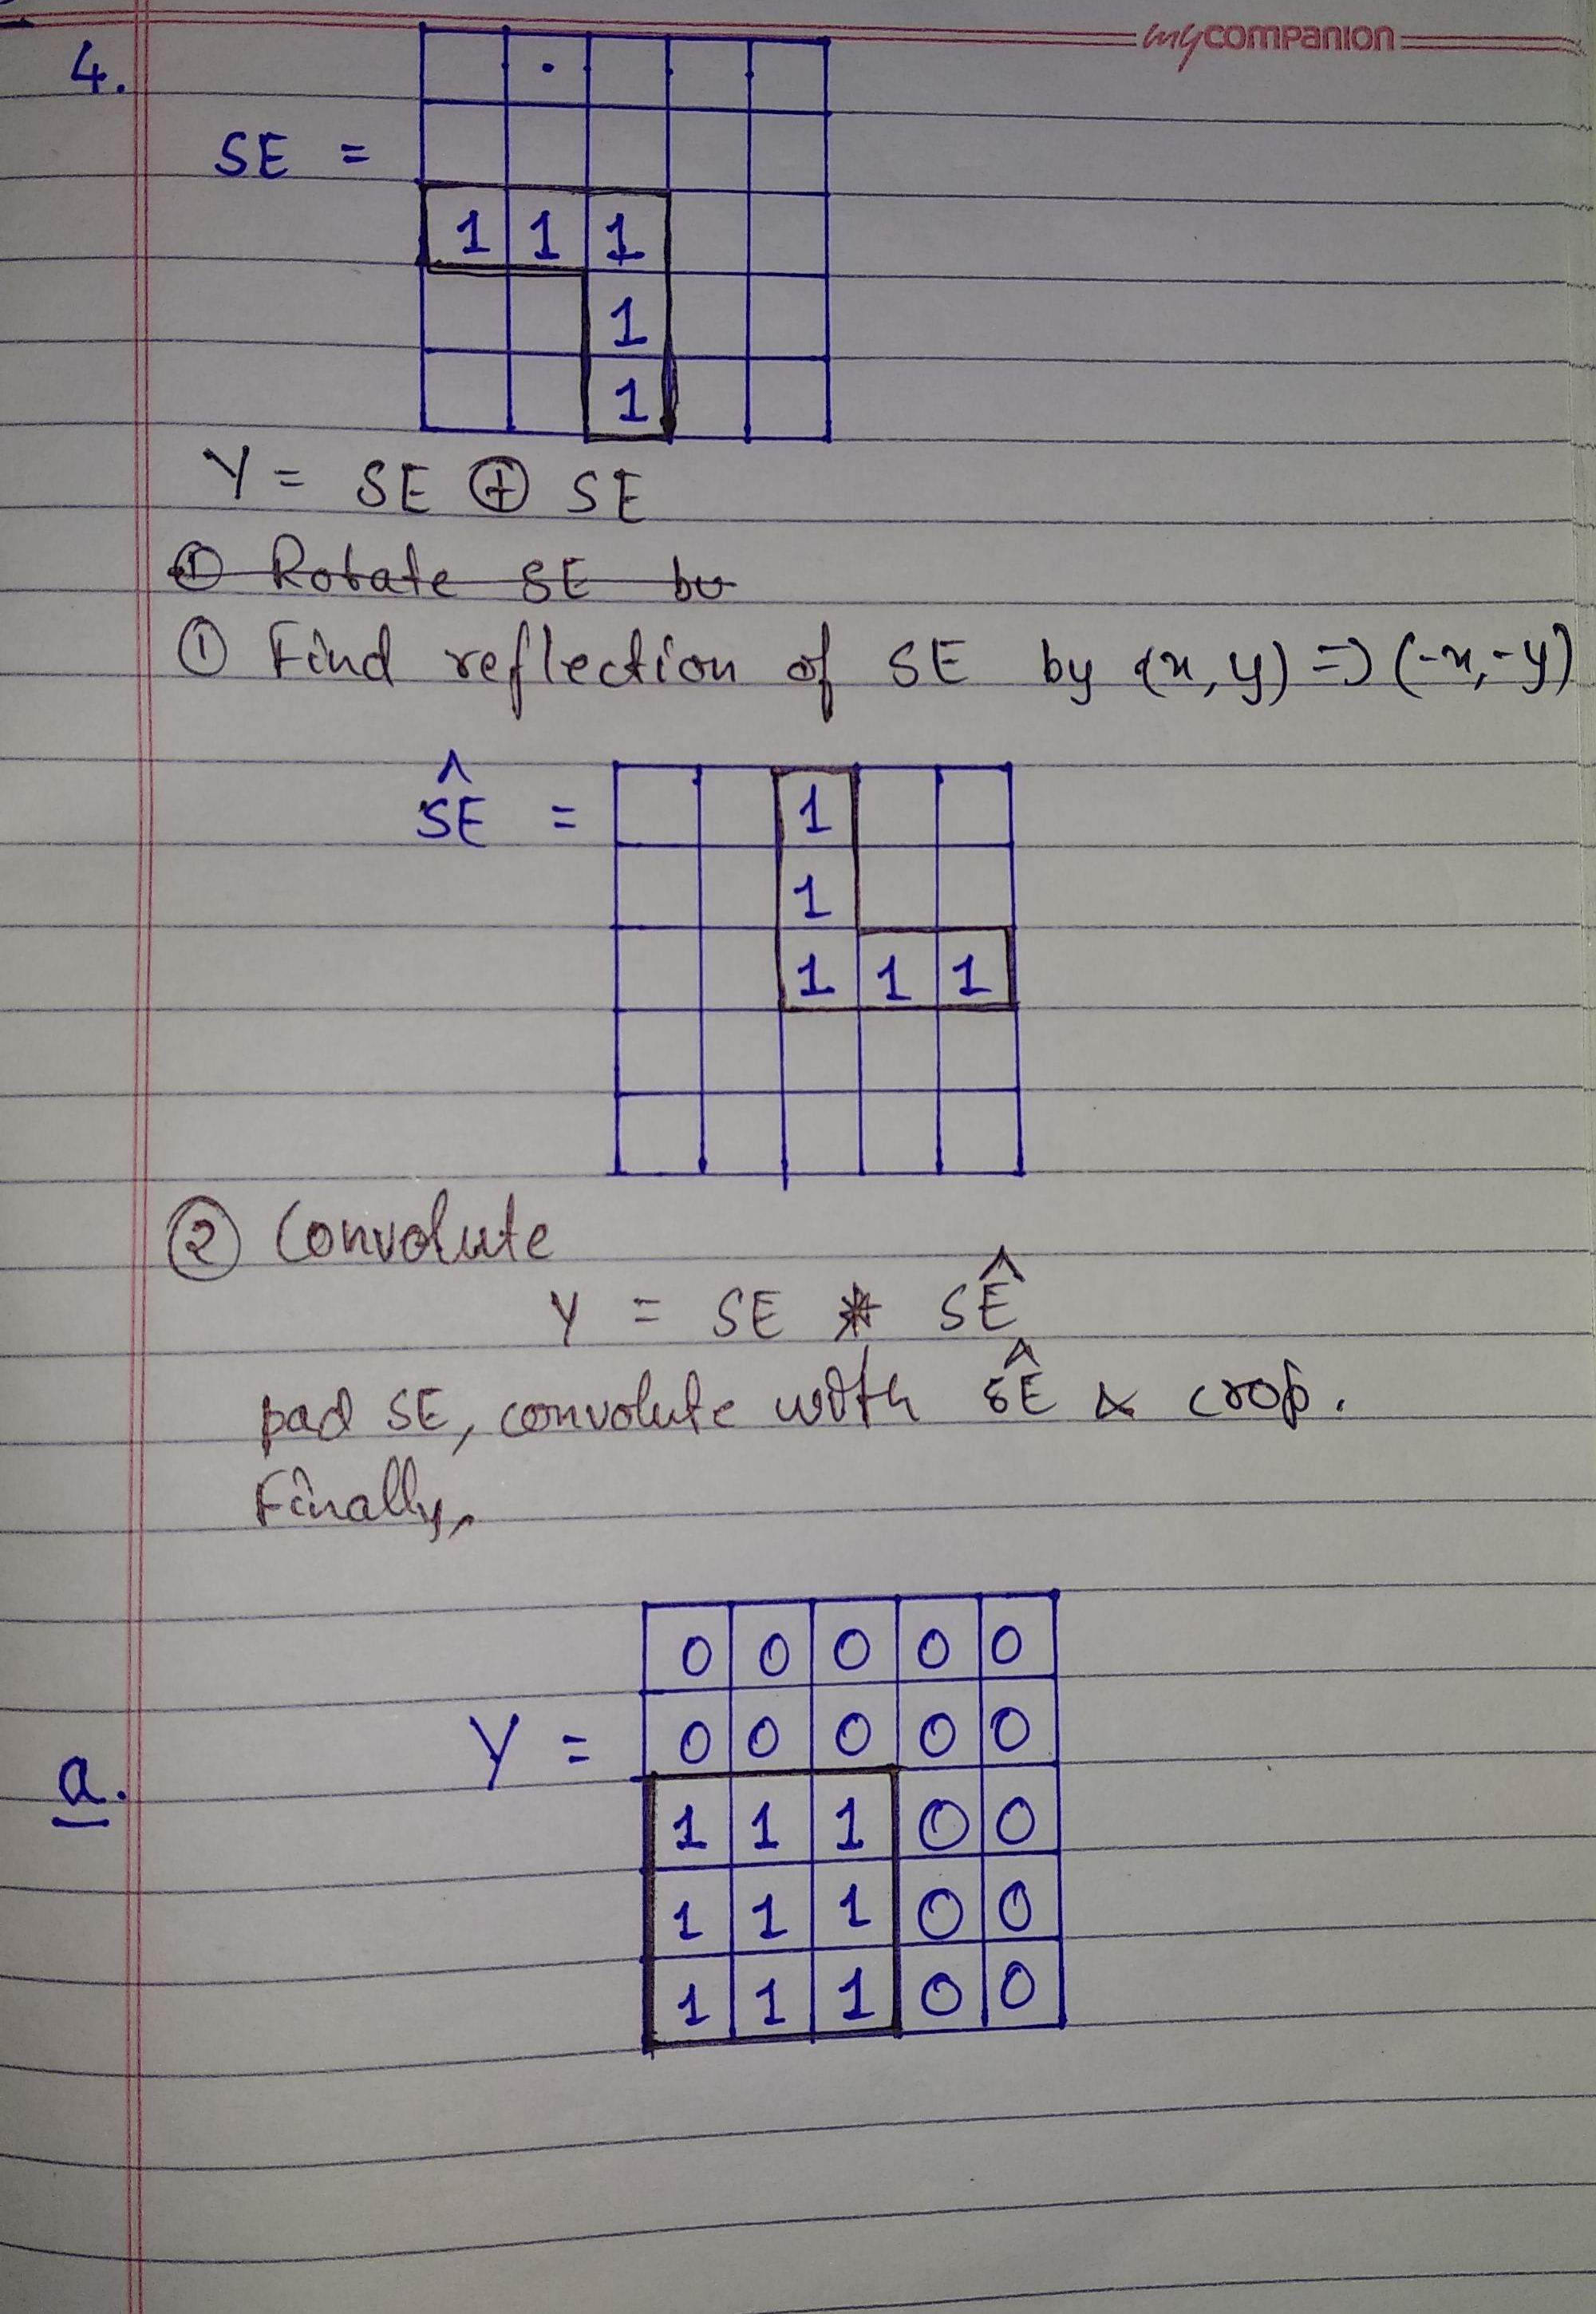 mycompanion
4.
SE =
1 1 1
1
1
Y = SE ⊕ SE
① Rotate SE by
① Find reflection of SE by (x, y) => (-x, -y)
ŜE =
1
1
1 1 1
② Convolute
Y = SE * SÊ
pad SE, convolute with SÊ & crop.
Finally,
0 0 0 0 0
Y = 0 0 0 0 0
a. 1 1 1 0 0
1 1 1 0 0
1 1 1 0 0